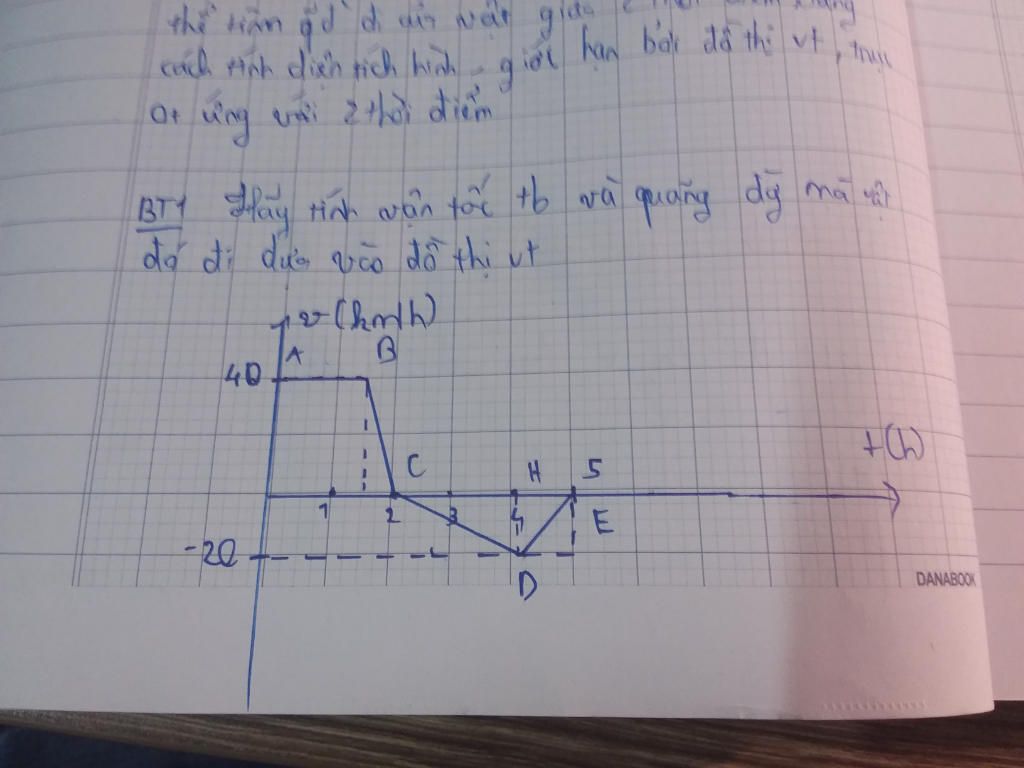 thể tính qđ đi của vật giữa 2 thời điểm bằng
cách tính diện tích hình giới hạn bởi đồ thị vt, trục
Ot ứng với 2 thời điểm
BT1 Hãy tính vận tốc tb và quãng đg mà vật
đó đi dựa vào đồ thị vt
v (km/h)
A B
40
t(h)
C H 5
1 2 3 4 E
-20
D
DANABOOK